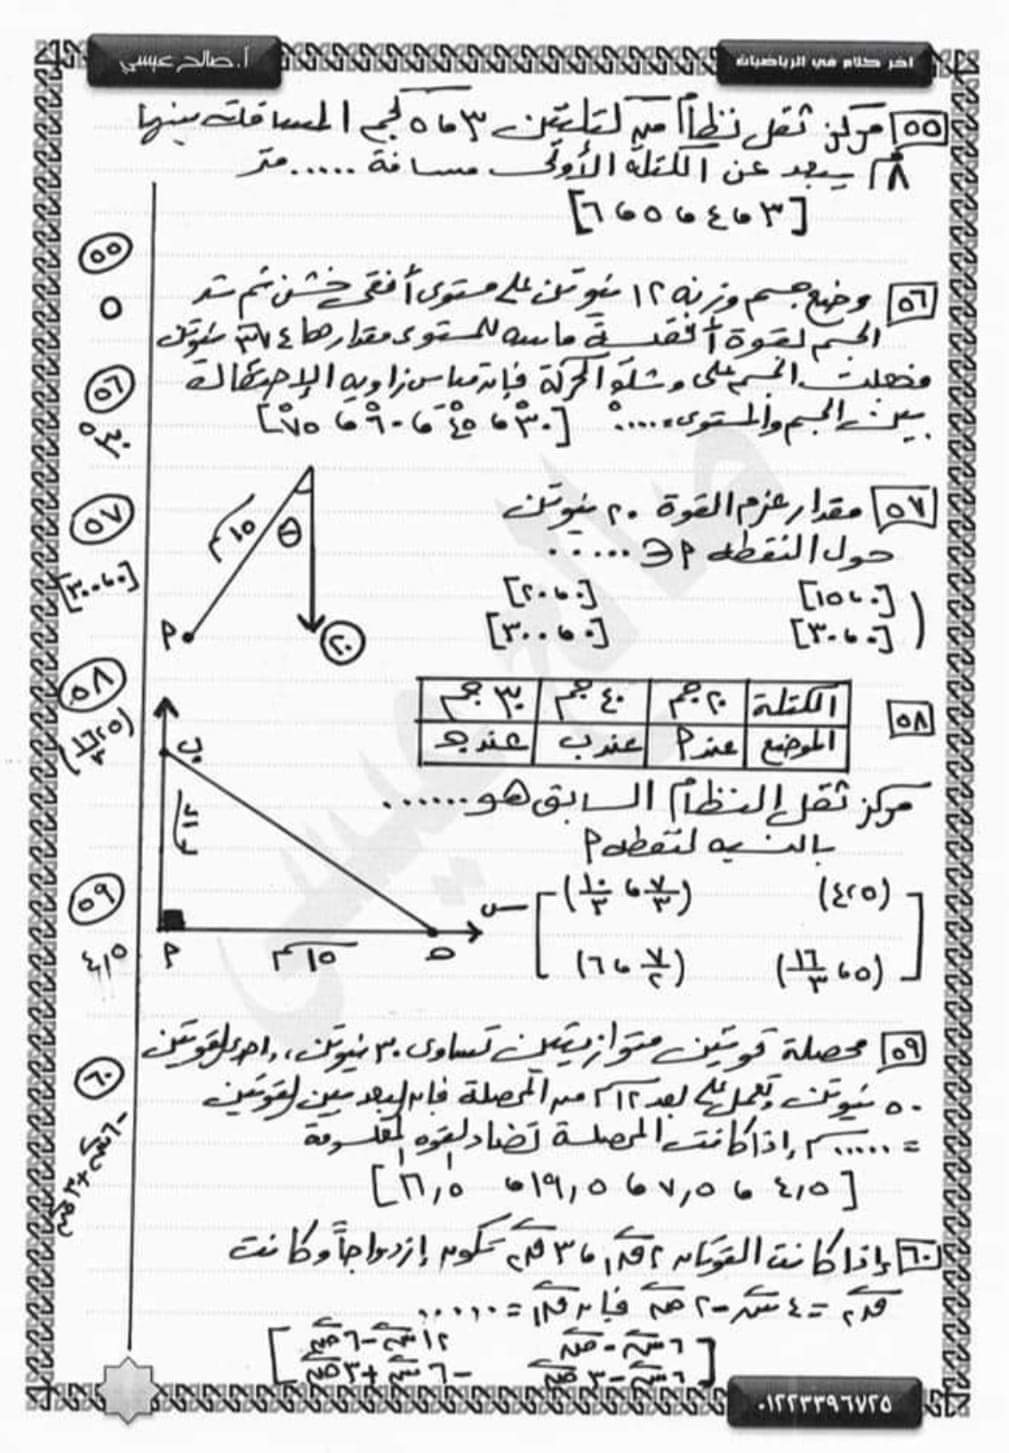 اخر كلام في الرياضيات
أ. صالح عيسي
٥٥ مركز ثقل نظام من كتلتين ٣ ، ٥ كجم المسافة بينهما
٨ م يبعد عن الكتلة الأولى مسافة ..... متر
[٣ ، ٤ ، ٥ ، ٦]
٥٦ وضع جسم وزنه ١٢ نيوتن على مستوى أفقى خشن ثم شد
الجسم لقوة أفقية مقدارها ٤√٣ نيوتن
فجعلت الجسم على وشك الحركة فإن قياس زاوية الإحتكاك
بين الجسم والمستوى = .....° [٣٠° ، ٤٥° ، ٦٠° ، ٧٥°]
٥٧ مقدار عزم القوة ٢٠ نيوتن
حول النقطة م ∈ ......
([٠ ، ١٥] [٠ ، ٢٠]
[٠ ، ٣٠] [٠ ، ٣٠٠])
١٥ سم
θ
م
٢٠
٥٨
الكتلة ٢٠ جم ٤٠ جم ٣٠ جم
الموضع عند م عند ب عند هـ
مركز ثقل النظام السابق هو ......
بالنسبه لنقطه م
[(٤،٥) (٧/٣ ، ١٠/٣)
(٥ ، ١٦/٣) (٧/٢ ، ٦)]
ب
١٢ سم
س
م ١٥ سم هـ
٥٩ محصلة قوتين متوازيتين تساوى ٣٠ نيوتن ، واحدى القوتين
٥٠ نيوتن وتعمل على بعد ١٢ م من المحصلة فإن البعد بين القوتين
= ..... م ، إذا كانت المحصلة تضاد القوه المعلومة
[٤,٥ ، ٧,٥ ، ١٩,٥ ، ١٦,٥]
٦٠ إذا كانت القوتان ٢ ق١ ، ٣ ق٢ تكون إزدواجاً وكانت
ق٢ = ٤ س - ٢ ص فإن ق١ = ......
[٦ س - ص ١٢ س - ٦ ص
٦ س - ٣ ص -٦ س + ٣ ص]
٥٥
٥
٥٦
٣٠°
٥٧
[٠ ، ٣٠٠]
٥٨
(٥ ، ١٦/٣)
٥٩
٤,٥
٦٠
-٦ س + ٣ ص
٠١٢٢٣٣٩٦٧٢٥